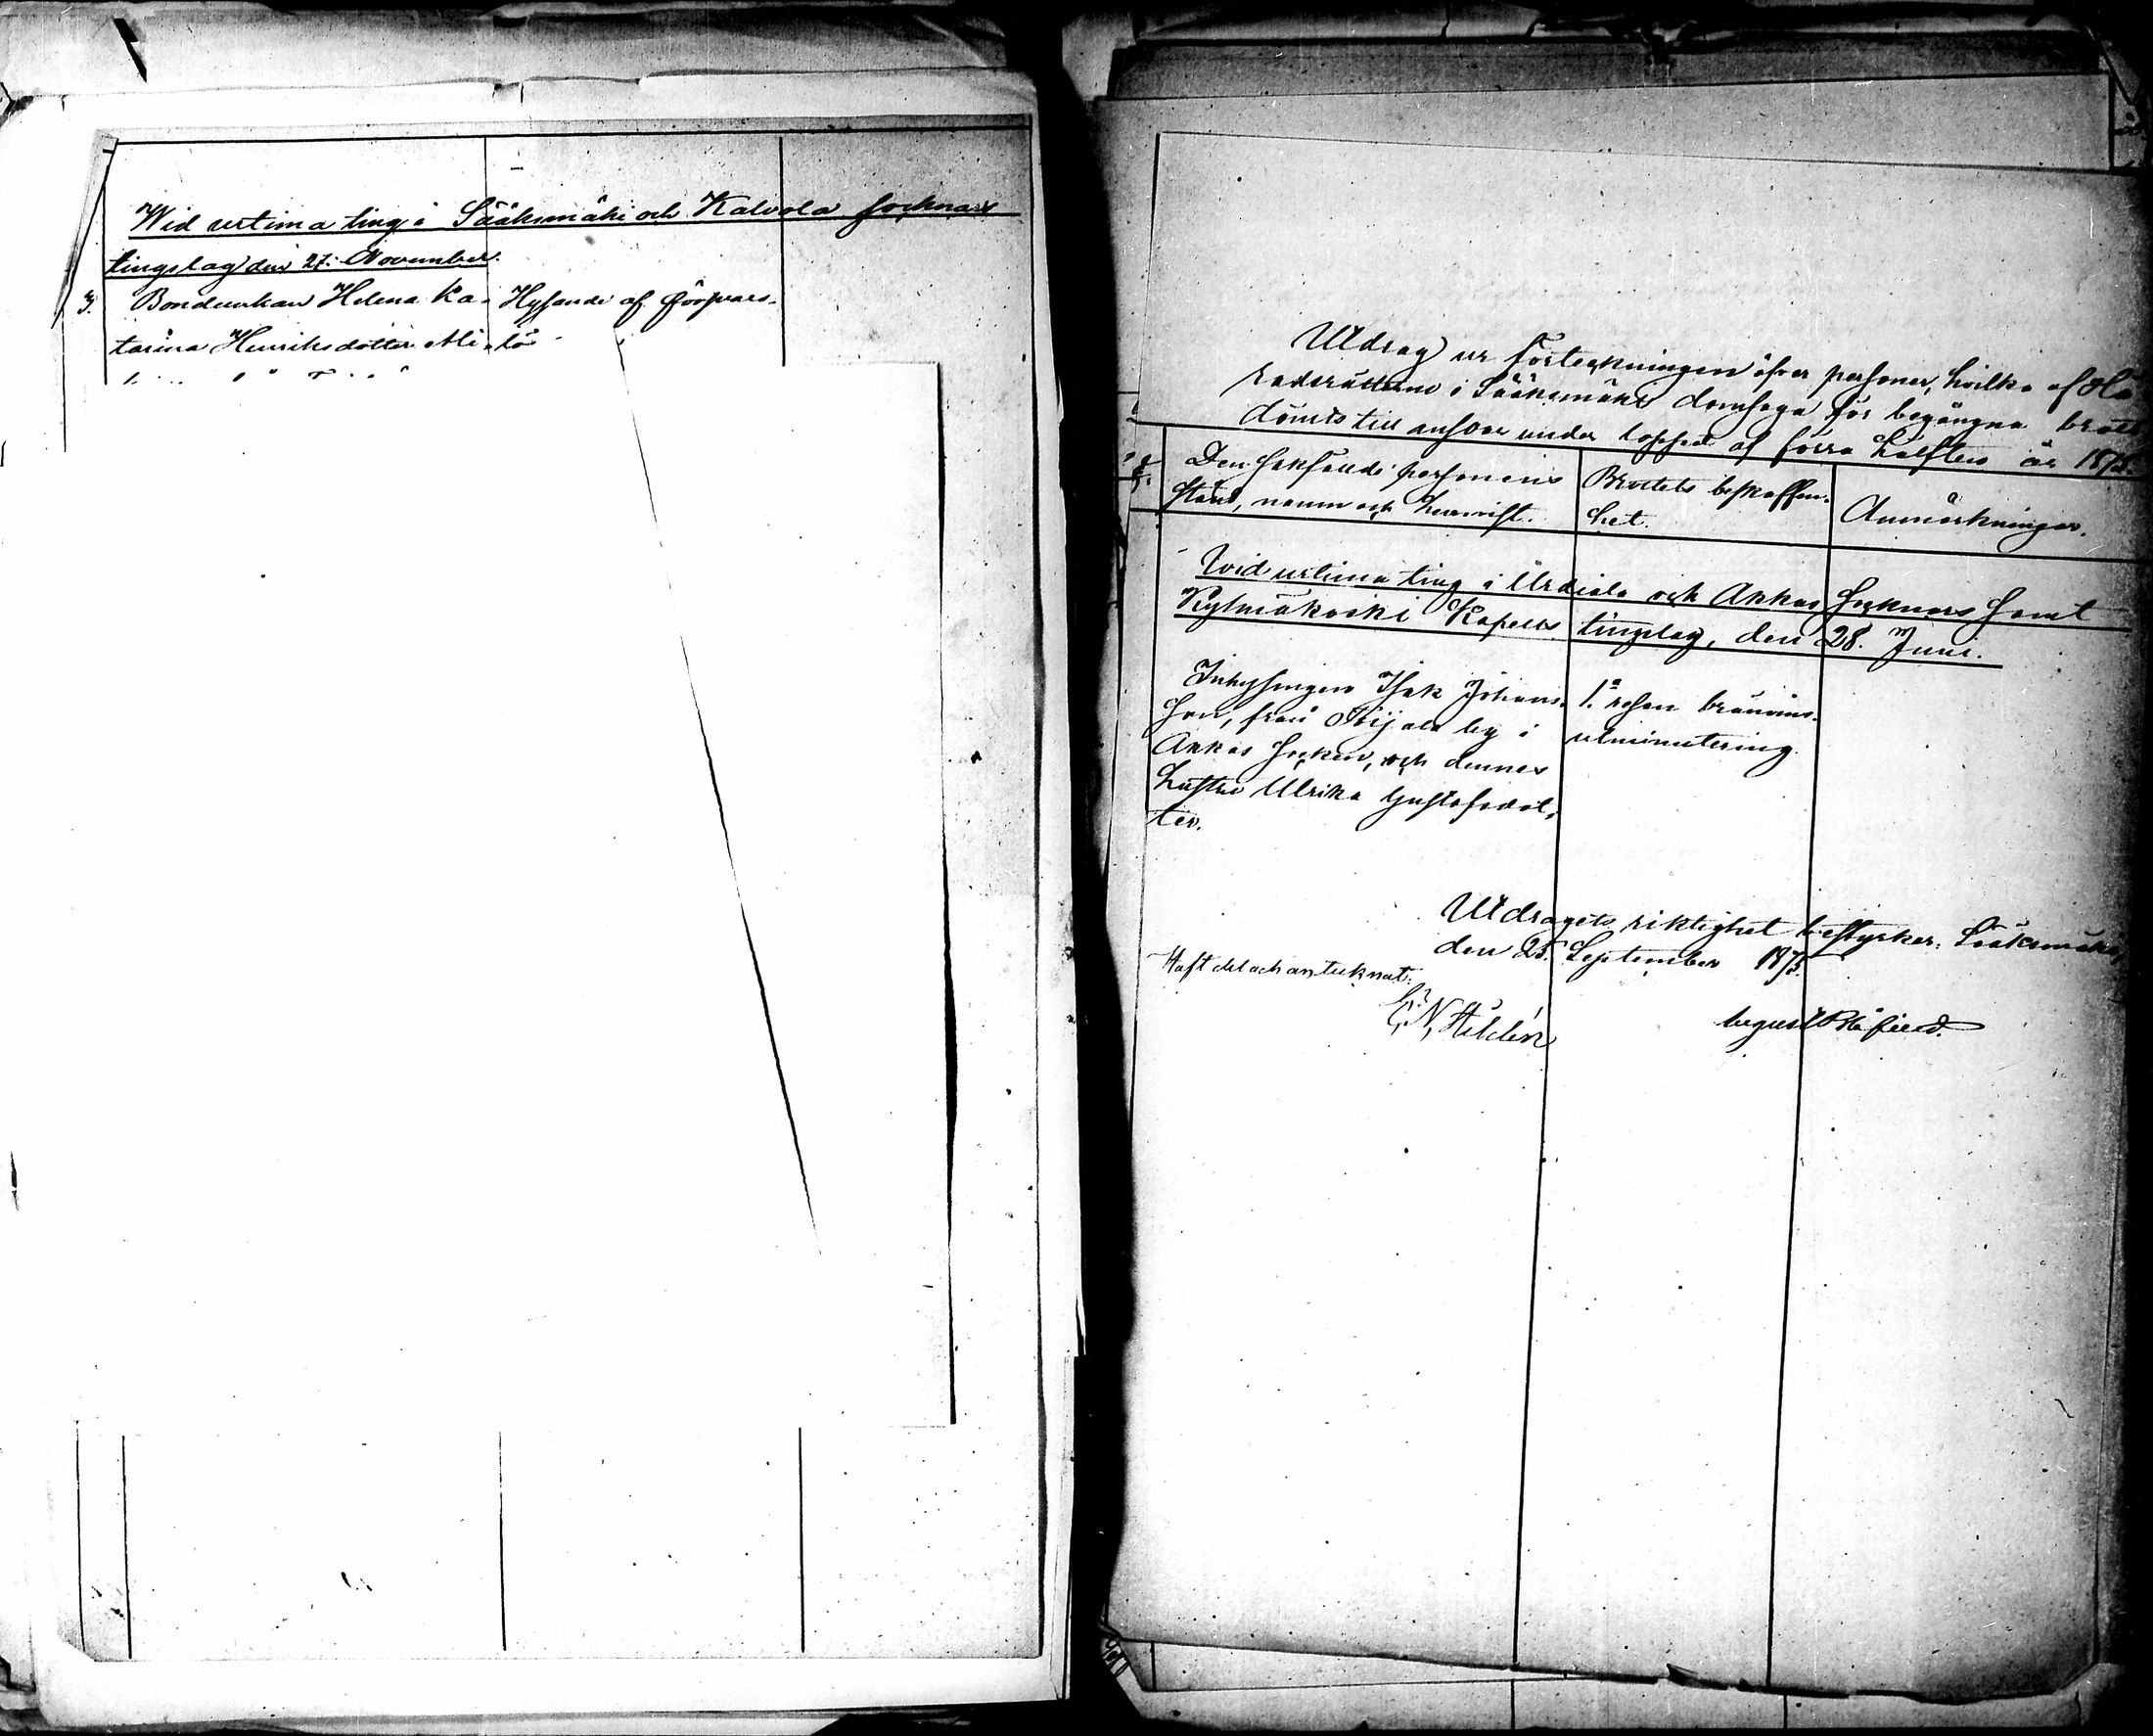 Wid urtima ting i Sääksmäki och Kalvola socknars
tingslag den 27. November.
3. Bondeenkan Helena Ka- Hysande af försvars-
tarina Henriksdotter lös
Utdrag ur förteckningen öfver personer, hvilka af Hä-
radsrätterne i Sääksmäki domsaga för begångna brott
dömts till ansvar under loppet af förra hälften år 1875.
Den sakfällde personens Brottets beskaffen- Anmärkningar.
stånd, namn och hemvist. het.
Wid urtima ting i Urdiala och Akkas socknars samt
Kylmäkoski Kapells tingslag, den 28. Juni.
Inhysingen Isak Johans- 1:a resan bränvins-
son, från Toijala by i utminutering.
Akkas socken, och dennes
hustru Ulrika Gustafsdot-
ter.
Utdragets riktighet bestyrker; Sääksmäki,
den 25. September 1875.
Haft del och antecknat:
August